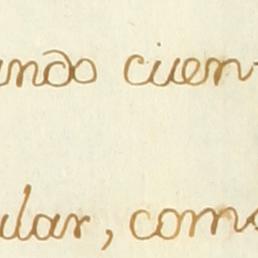 ando cuen-
ular, como